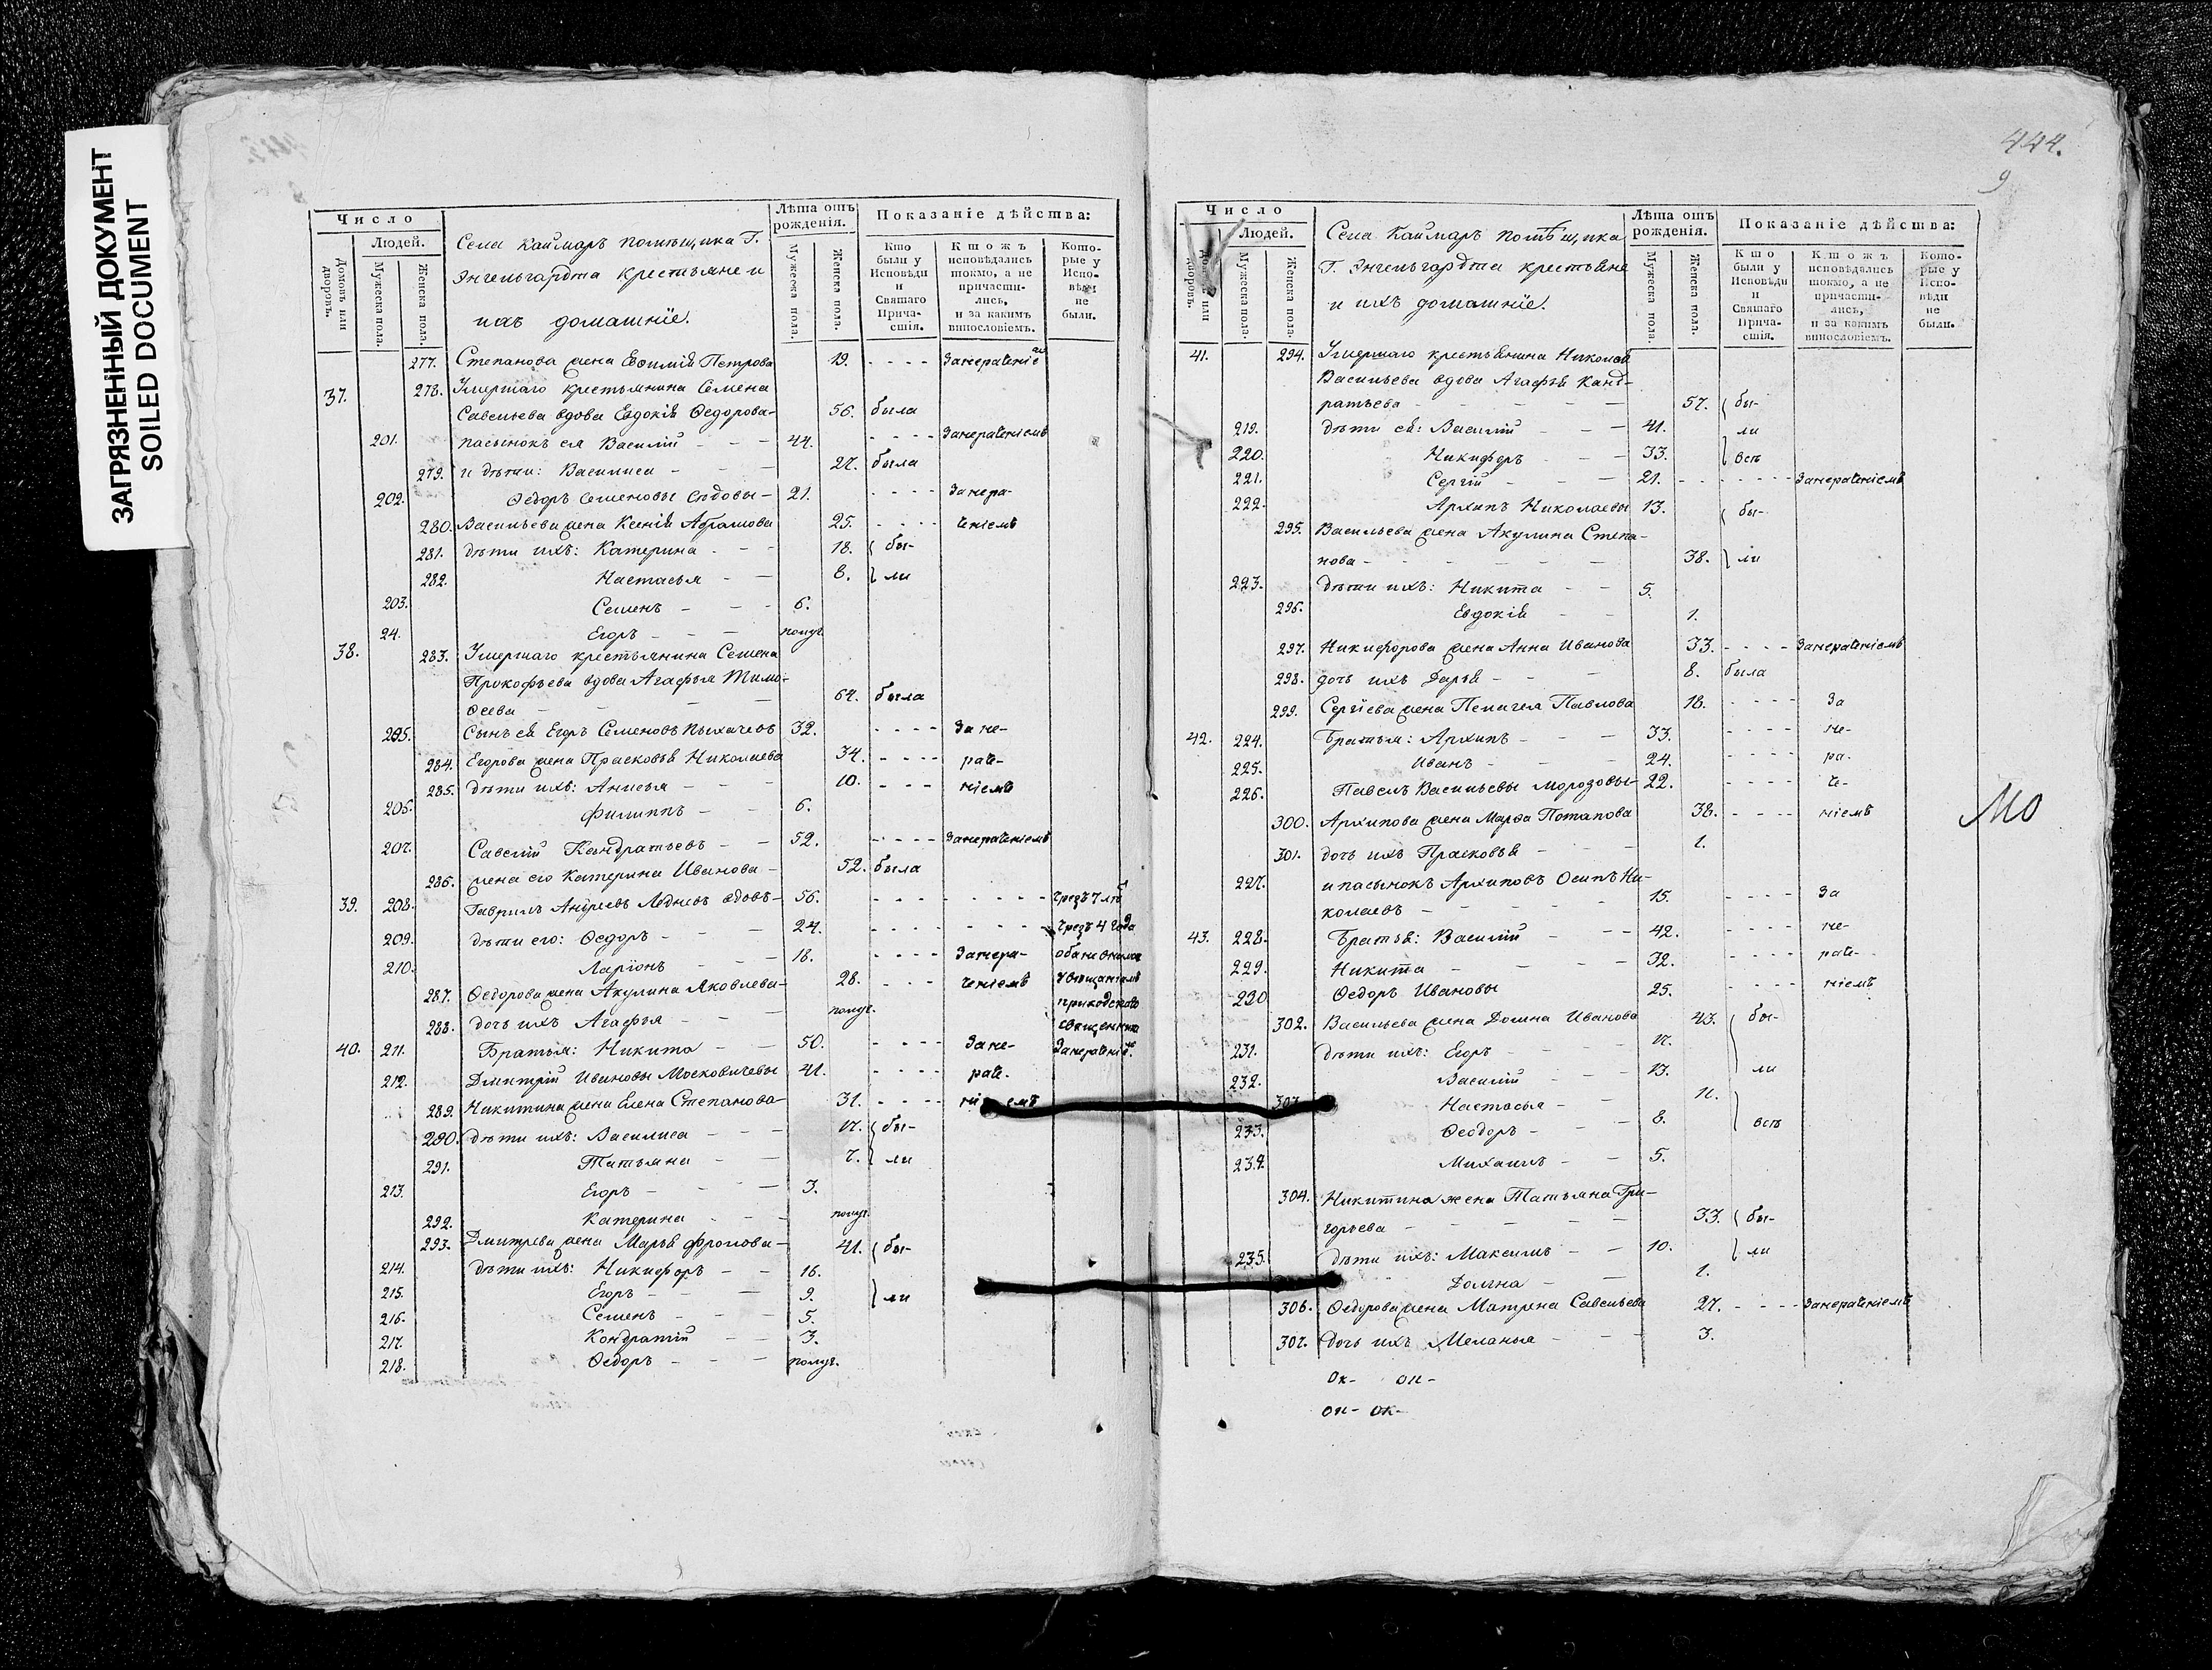 ЗАГРЯЗНЕННЫЙ ДОКУМЕНТ
SOILED DOCUMENT
Число
Людей.
Домовъ или дворовъ.
Мужеска пола.
Женска пола.
Села Каймаръ помѣщика Г.
Энгельгардта крестьяне и
ихъ домашнїе.
Лѣта отъ рожденія.
Мужеска пола.
Женска пола.
Показаніе дѣйства:
Кто были у Исповѣди и Святаго Причастія.
Ктожъ исповѣдались токмо, а не причастились, и за какимъ винословіемъ.
Которые у Исповѣди не были.
277. Степанова жена Евѳимія Петрова 19. - - - - Занераченіе
37. 278. Умершаго крестьянина Семена
Савельева вдова Евдокія Ѳедорова - 56. была
201. пасынокъ ея Василій - - - 44. - - - - Занераченіемъ
279. и дѣти: Василиса - - - 27. была
202. Ѳедоръ Семеновы - 21. - - - - Занера-
280. Васильева жена Ксенія Абрамова 25. - - - - ченіемъ
281. дѣти ихъ: Катерина - - - 18. бы-
282. Настасья - - 8. ли
203. Семенъ - - - 6.
24. Егоръ - - - полуг.
38. 283. Умершаго крестьянина Семена
Прокофьева вдова Агафья Тимо-
ѳеева - - - - 64. была
205. Сынъ ея Егоръ Семеновъ Пыхачевъ 32. - - - - За не-
284. Егорова жена Прасковья Николаева 34. - - - - раче-
285. дѣти ихъ: Анисья - - - 10. - - - - ніемъ
206. Филиппъ - - 6.
207. Савелій Кандратьевъ - - 52. - - - - Занераченіемъ
286. жена его Катерина Иванова - 52. была
39. 208. Гаврилъ Андреевъ Ледневъ вдовъ - 56. - - - - - - - - Чрезъ 7 лѣ
209. дѣти его: Ѳедоръ - - - 24. - - - - - - - Чрезъ 4 года
210. Ларіонъ - - - 18. - - - - Занера-
287. Ѳедорова жена Акулина Яковлева - 28. - - - ченіемъ увѣщаніемъ
приходскаго
288. дочь ихъ Агафья - - - полуг. священника
40. 211. Братья: Никита - - 50. - - - - Зане- Занераченіе
212. Дмитрій Ивановы Московичевы 41. - - - - раче-
289. Никитина жена Елена Степанова - 31. - - - - ніемъ
290. дѣти ихъ: Василиса - - - 17. бы-
291. Татьяна - - 7. ли
213. Егоръ - - - 3.
292. Катерина - - - полуг.
293. Дмитрева жена Марья Фролова - 41. бы-
214. дѣти ихъ: Никифоръ - - 16.
215. Егоръ - - - 9. ли
216. Семенъ - - 5.
217. Кондратій - - 3.
218. Ѳедоръ - - - полуг.
444.
9
Число
Людей.
Домовъ или дворовъ.
Мужеска пола.
Женска пола.
Села Каймаръ помѣщика
Г. Энгельгардта крестьяне
и ихъ домашнїе.
Лѣта отъ рожденія.
Мужеска пола.
Женска пола.
Показаніе дѣйства:
Кто были у Исповѣди и Святаго Причастія.
Ктожъ исповѣдались токмо, а не причастились, и за какимъ винословіемъ.
Которые у Исповѣди не были.
41. 294. Умершаго крестьянина Николая
Васильева вдова Агафья Канд-
ратьева - - - - - 57. бы-
219. дѣти ея: Василій - - - 41. ли
220. Никифоръ - - - 33. всѣ
221. Сергій - - - 21. - - - - - - Занераченіемъ
222. Архипъ Николаевы 13. бы-
295. Васильева жена Акулина Степа-
нова - - - - - - 38. ли
223. дѣти ихъ: Никита - - 5.
296. Евдокія - - 1.
297. Никифорова жена Анна Иванова 33. - - - - Занераченіемъ
298. дочь ихъ Дарья - - - 8. была
299. Сергіева жена Пелагея Павлова 18. - - - - За
42. 224. Братья: Архипъ - - - 33. - - - - не-
225. Иванъ - - - 24. - - - - ра-
226. Павелъ Васильевы Морозовы - 22. - - - - че-
300. Архипова жена Марѳа Потапова 38. - - - - ніемъ
301. дочь ихъ Прасковья - - - 1.
227. и пасынокъ Архиповъ Осипъ Ни-
колаевъ - - - - - 15. - - - - За
43. 228. Братья: Василій - - - 42. - - - - не-
229. Никита - - - - 32. - - - - раче-
230 Ѳедоръ Ивановы 25. - - - - ніемъ
302. Васильева жена Домна Иванова 43. бы-
231. дѣти ихъ: Егоръ - - - - 17.
232. Василій - - - 13. ли
Настасья - - 11.
233. Ѳеодоръ - - - - 8. всѣ
234. Михаилъ - - - 5.
304. Никитина жена Татьяна Гри-
горьева - - - - - 33. бы-
235. дѣти ихъ: Максимъ - - 10. ли
Домна - - 1.
306. Ѳедорова жена Матрена Савельева 27. - - - - Занераченіемъ
307. дочь ихъ Меланья - - - 3.
МО